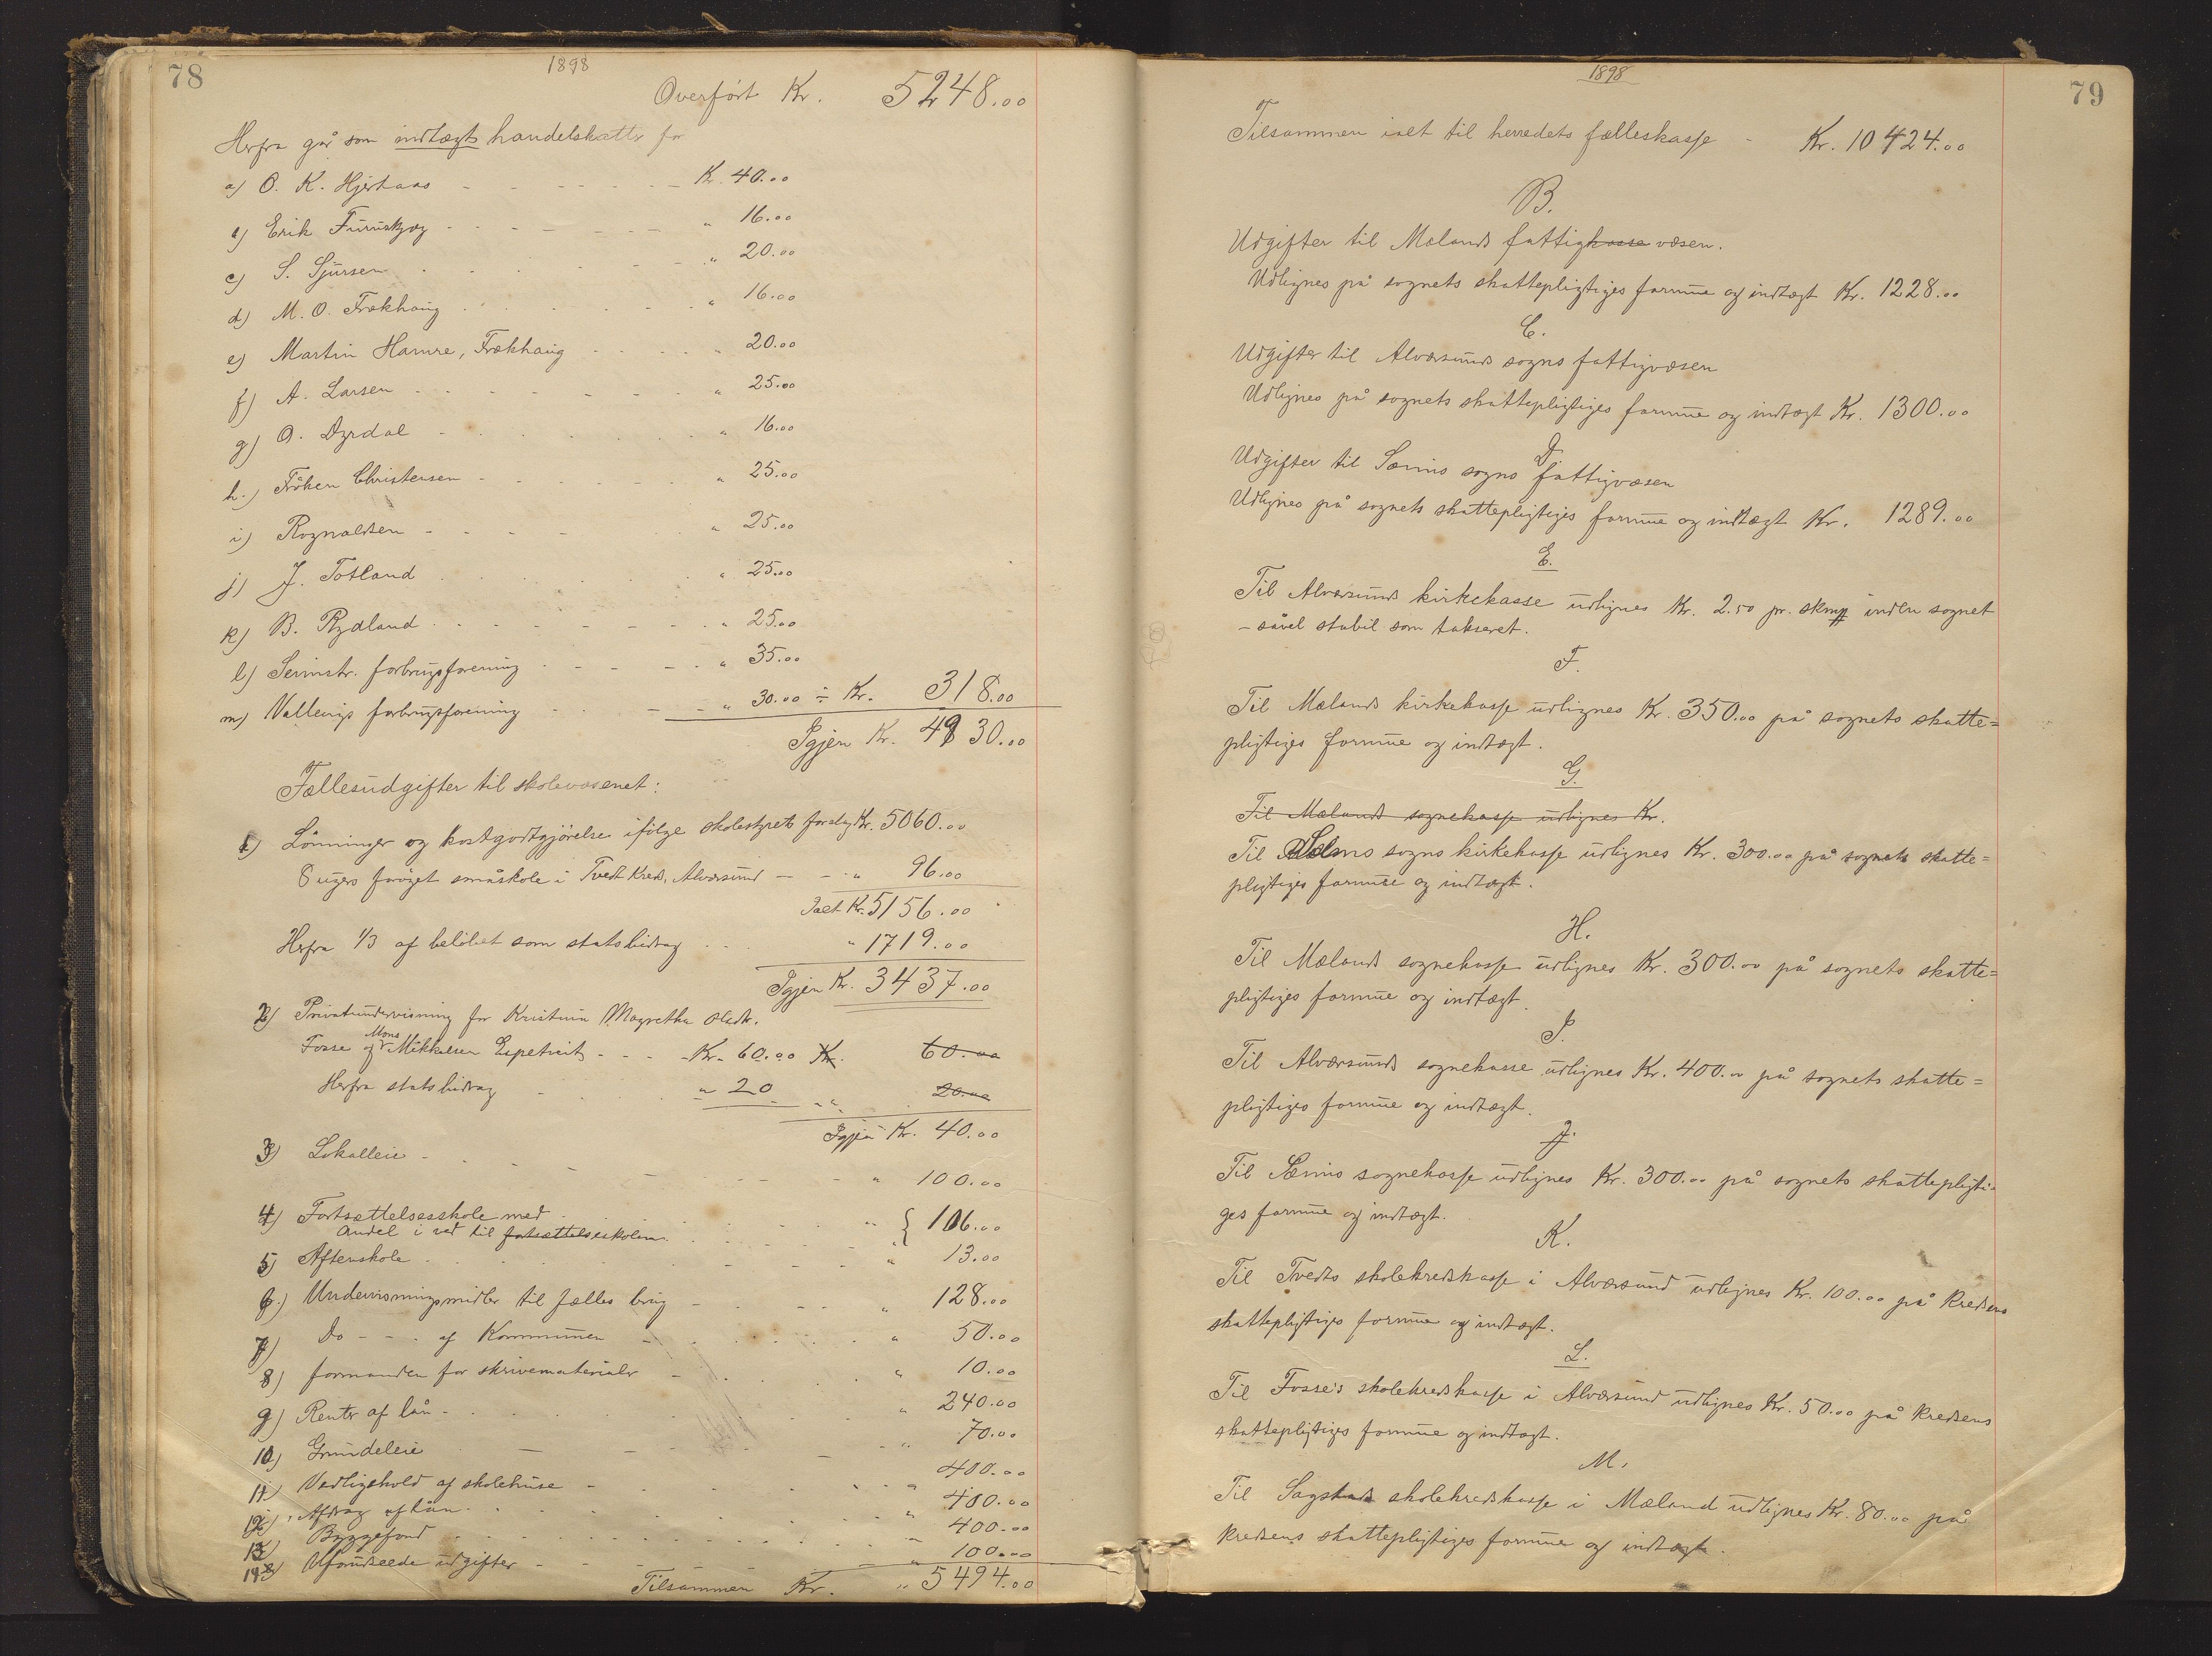 78
1898
Overført Kr. 5248.00
Herfra går som indtægt handelskatte for
a) O. K. Hjertaas - - - - - - Kr. 40.00
b) Erik Furuskjæg - - - - - - " 16.00
c) S. Sjursen - - - - " 20.00
d) M. O. Frækhaug - - - - " 16.00
e) Martin Hamre, Frækhaug - - - - " 20.00
f) A. Larsen - - - - - " 25.00
g) O. Dyrdal - - - - - " 16.00
h.) Frøken Christensen - - - - - " 25.00
i) Rognaldsen - - - - - " 25.00
j) J. Totland - - - - - " 25.00
k) B. Rydland - - - - - " 25.00
l) Seimstr. forbrugsforening - - - - " 35.00
m) Vallevigs forbrugsforening - - - - " 30.00 ÷ Kr. 318.00
Igjen Kr. 4930.00
Fællesudgifter til skolevæsenet:
1) Lønninger og kostgodtgjørelse ifølge skolestyrets forslag Kr. 5060.00
8 ugers forøget småskole i Tvedt Kreds, Alværsund - - " 96.00
Ialt Kr. 5156.00
Herfra 1/3 af beløbet som statsbidrag - - " 1719.00
Igjen Kr. 3437.00
2) Privatundervisning for Kristina Magretha Olsdtr.
Fosse og Mons Mikkelsen Espetveit - - - Kr. 60.00 Kr. 60.00
Herfra statsbidrag - - - " 20 " 20.00
Igjen Kr. 40.00
3) Lokalleie - - - - - - " 100.00
4) Fortsættelsesskole med - - - - " { 106.00
Andel i ved til fortsættelsesskolen - - -
5) Aftenskole - - - - - - " 13.00
6.) Undervisningsmidler til fælles brug - - - - " 128.00
7) Do - - af Kommunen - - - - " 50.00
8) formanden for skrivematerialer - - - - " 10.00
9) Renter af lån - - - - - " 240.00
10) Grundeleie - - - - " 70.00
11) Vedligehold af skolehuse - - - - " 400.00
12) Afdrag af lån - - - - " 400.00
13) Byggefond - - - - " 400.00
14) Uforudseede udgifter - - - - " 100.00
Tilsammen Kr. " 5494.00
1898
79
Tilsammen ialt til herredets fælleskasse - Kr. 10424.00
B.
Udgifter til Mælands fattigkasse væsen.
Udlignes på sognets skattepligtiges formue og indtægt Kr. 1228.00
C.
Udgifter til Alværsunds sogns fattigvæsen
Udlignes på sognets skattepligtiges formue og indtægt Kr. 1300.00
D.
Udgifter til Sæms sogns fattigvæsen
Udlignes på sognets skattepligtiges formue og indtægt Kr. 1289.00
E.
Til Alværsunds kirkekasse udlignes Kr. 2.50 pr. skm inden sognet
- såvel stabil som takseret.
F.
Til Mælands kirkekasse udlignes Kr. 350.00 på sognets skatte=
pligtiges formue og indtægt.
G.
Til Mælands sognekasse udlignes Kr.
Til Sæms sogns kirkekasse udlignes Kr. 300.00 på sognets skatte=
pligtiges formue og indtægt.
H.
Til Mælands sognekasse udlignes Kr. 300.00 på sognets skatte=
pligtiges formue og indtægt.
I.
Til Alværsunds sognekasse udlignes Kr. 400.00 på sognets skatte=
pligtiges formue og indtægt.
J.
Til Sæms sognekasse udlignes Kr. 300.00 på sognets skattepligti=
ges formue og indtægt.
K.
Til Tvedts skolekredskasse i Alværsund udlignes Kr. 100.00 på Kredsens
skattepligtiges formue og indtægt.
L.
Til Fosse's skolekredskasse i Alværsund udlignes Kr. 50.00 på kredsens
skattepligtiges formue og indtægt.
M.
Til Sagstads skolekredskasse i Mæland udlignes Kr. 80.00 på
kredsens skattepligtiges formue og indtægt.